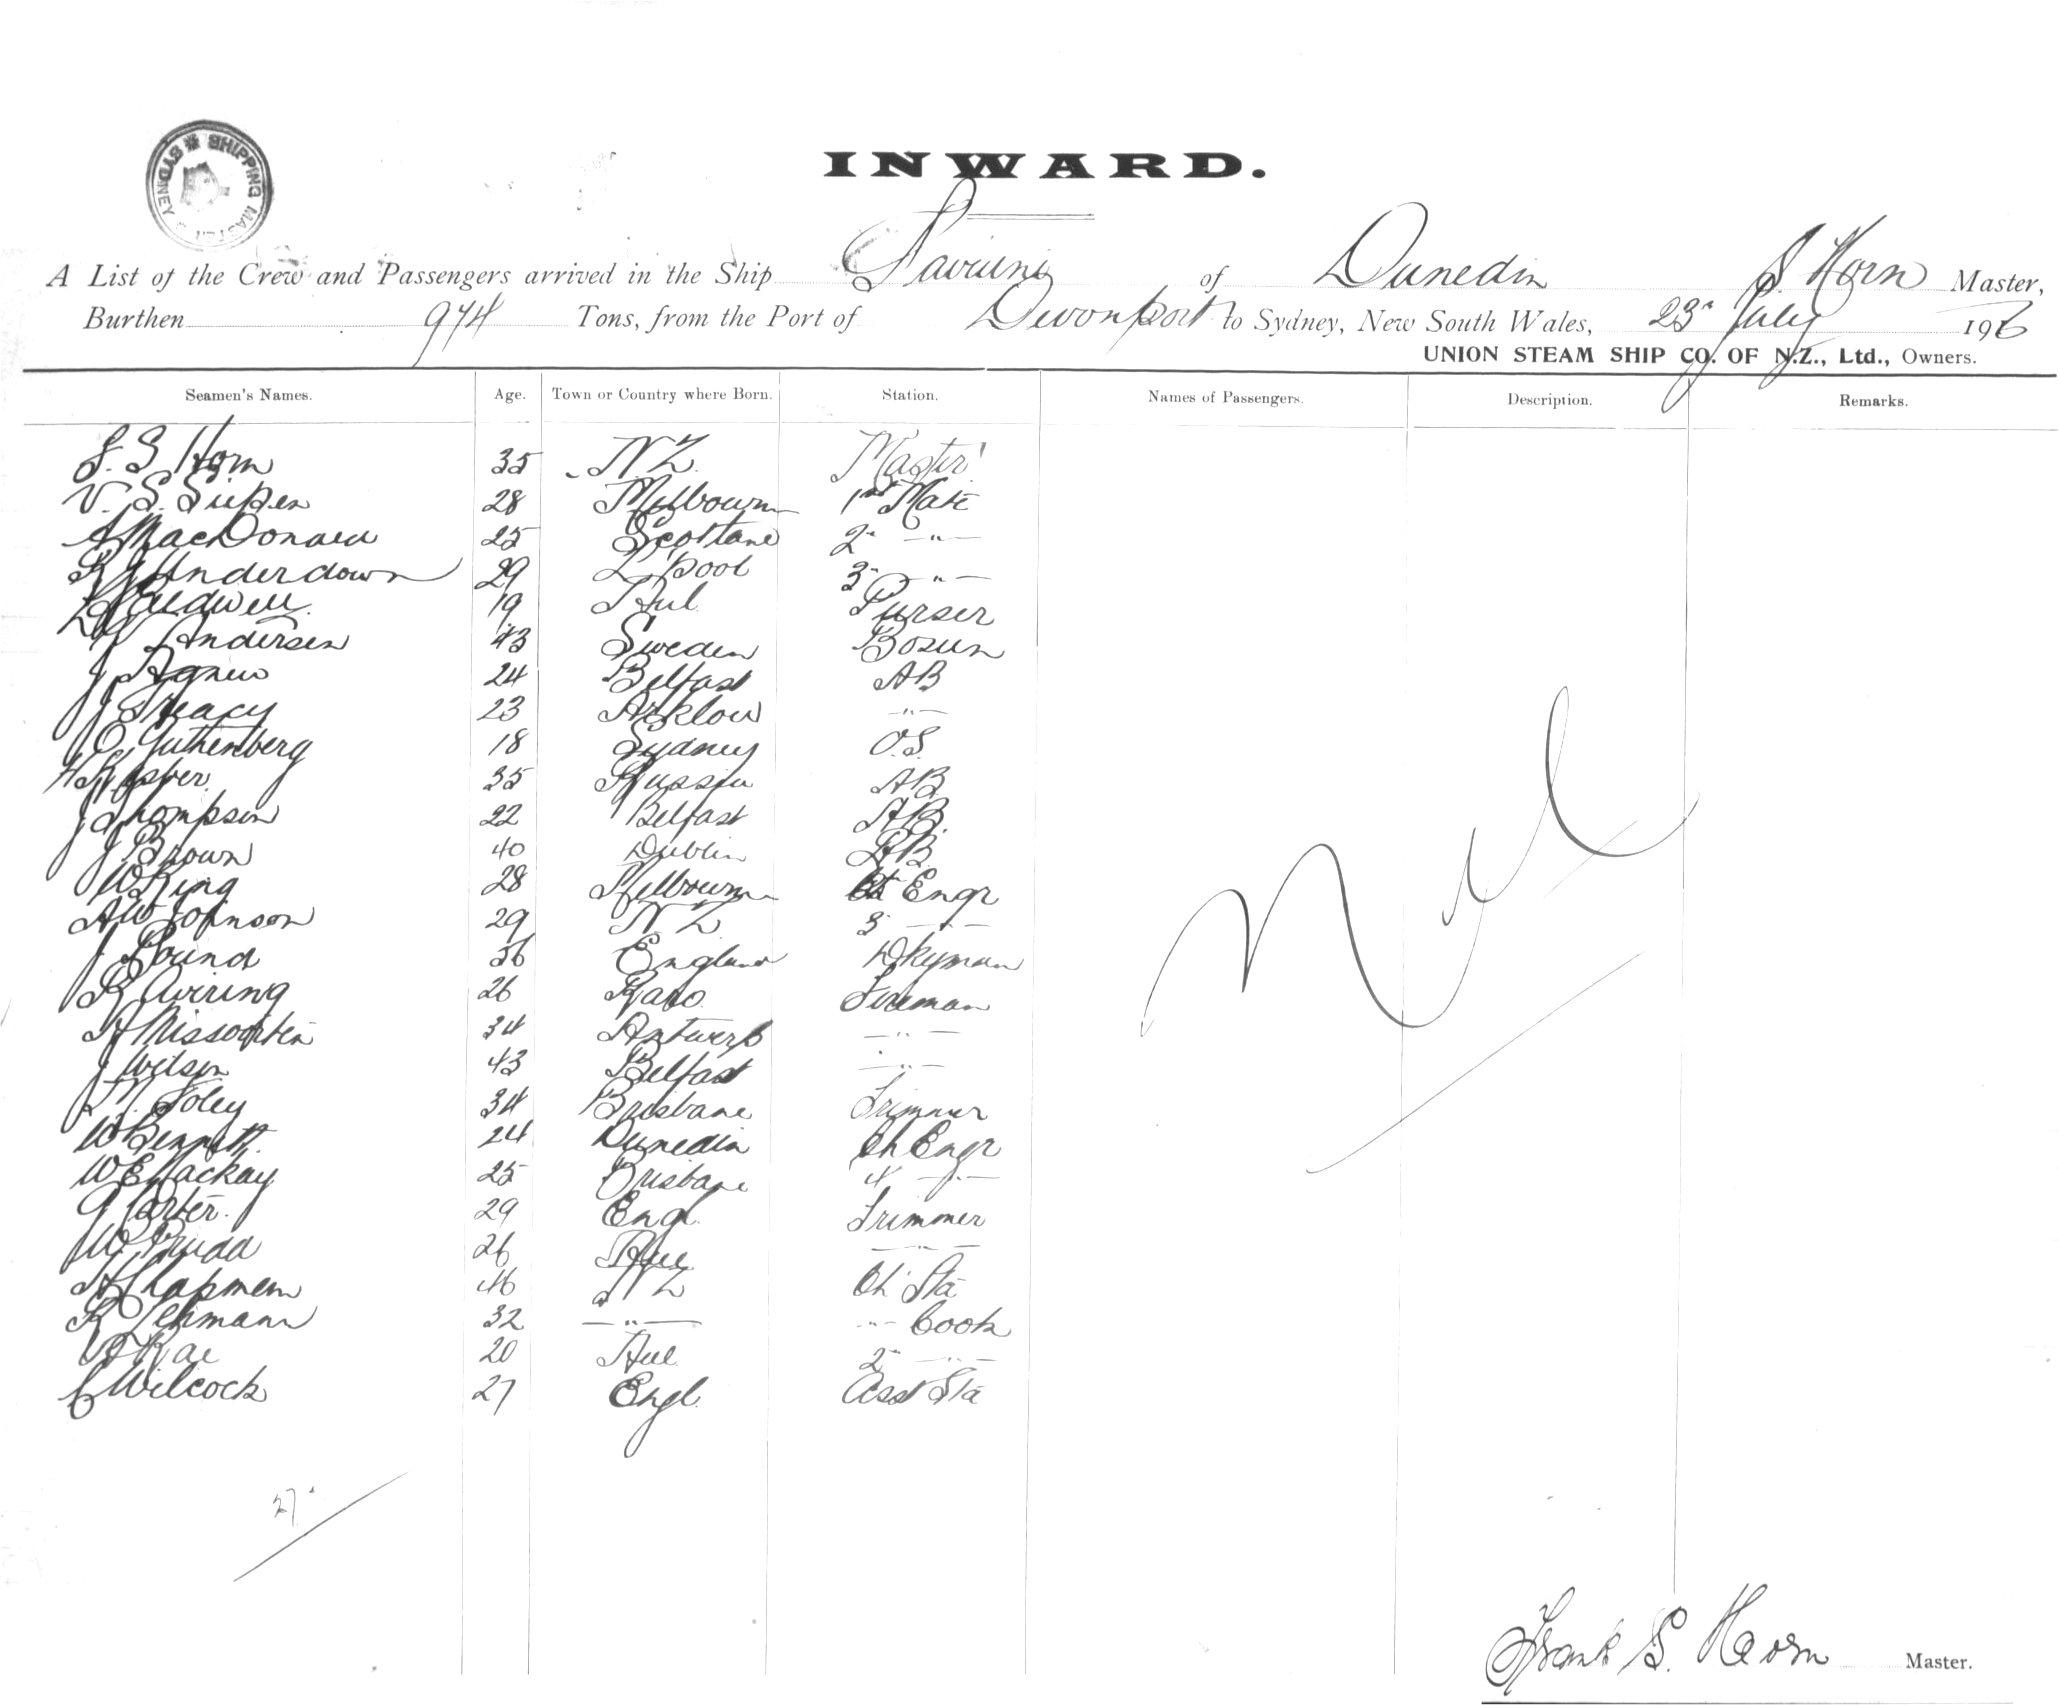 SHIPPING MASTER SYDNEY
INWARD.
A List of the Crew and Passengers arrived in the Ship Taviuni of Dunedin S Horn Master,
Burthen 974 Tons, from the Port of Devonport to Sydney, New South Wales, 23rd July 1916
UNION STEAM SHIP CO. OF N.Z., Ltd., Owners.
Seamen's Names. Age. Town or Country where Born. Station. Names of Passengers. Description. Remarks.
F. S Horn 35 NZ Master
V. S. 28 Melbourne 1st Mate
A MacDonald 25 Scotland 2nd -"-
R J Underdown 29 L'pool 3rd -"-
Caldwell 19 Aul Purser
Andersen 43 Sweden Bosun
J Agnew 24 Belfast AB
J Treacy 23 Arklow -"-
O Guthenberg 18 Sydney O.S.
H Kasper 35 Russia AB
J Thompson 22 Belfast AB
J Brown 40 Dublin AB
W King 28 Melbourne Engr
AW Johnson 29 NZ 3 -"-
J Pound 56 England Dkyman
R 26 Fireman
A 34 Antwerp -"-
J Wilson 43 Belfast -"-
M. Foley 34 Brisbane Trimmer
W Bennett. 24 Dunedin Ch Engr
W E Mackay 25 Brisbane 4 -"-
G Carter. 29 Engl. Trimmer
W Rudd 26 Aul -"-
A Chapman 46 NZ Ch Std
R Lehmann 32 -"- -"- Cook
Rae 20 Aul 2nd -"-
C Wilcock 27 Engl. Asst Std
Nil
27
Frank S. Horn Master.